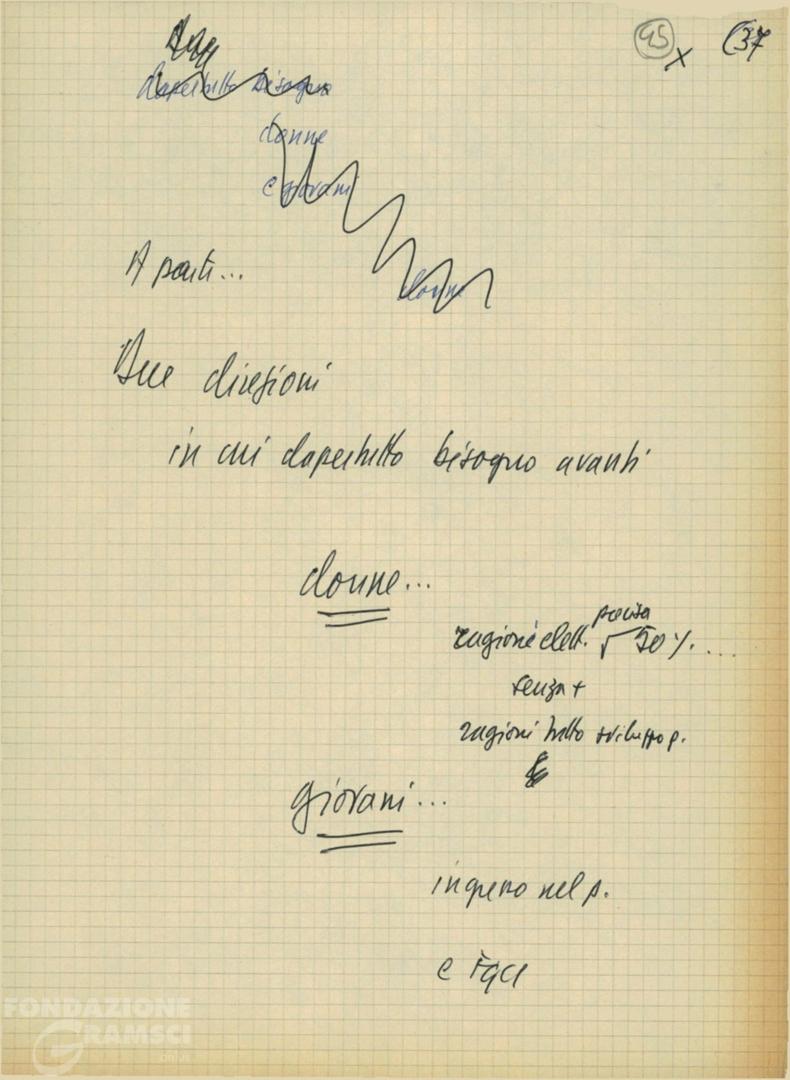 95 x (37
dapertutto bisogno
donne
e giovani
donne
A parti...
Due direzioni
in cui dapertutto bisogno avanti
donne...
ragioni elett. 50%....
senza +
ragioni tutto sviluppo p.
giovani...
ingresso nel p.
e FGCI
FONDAZIONE
GRAMSCI
onlus